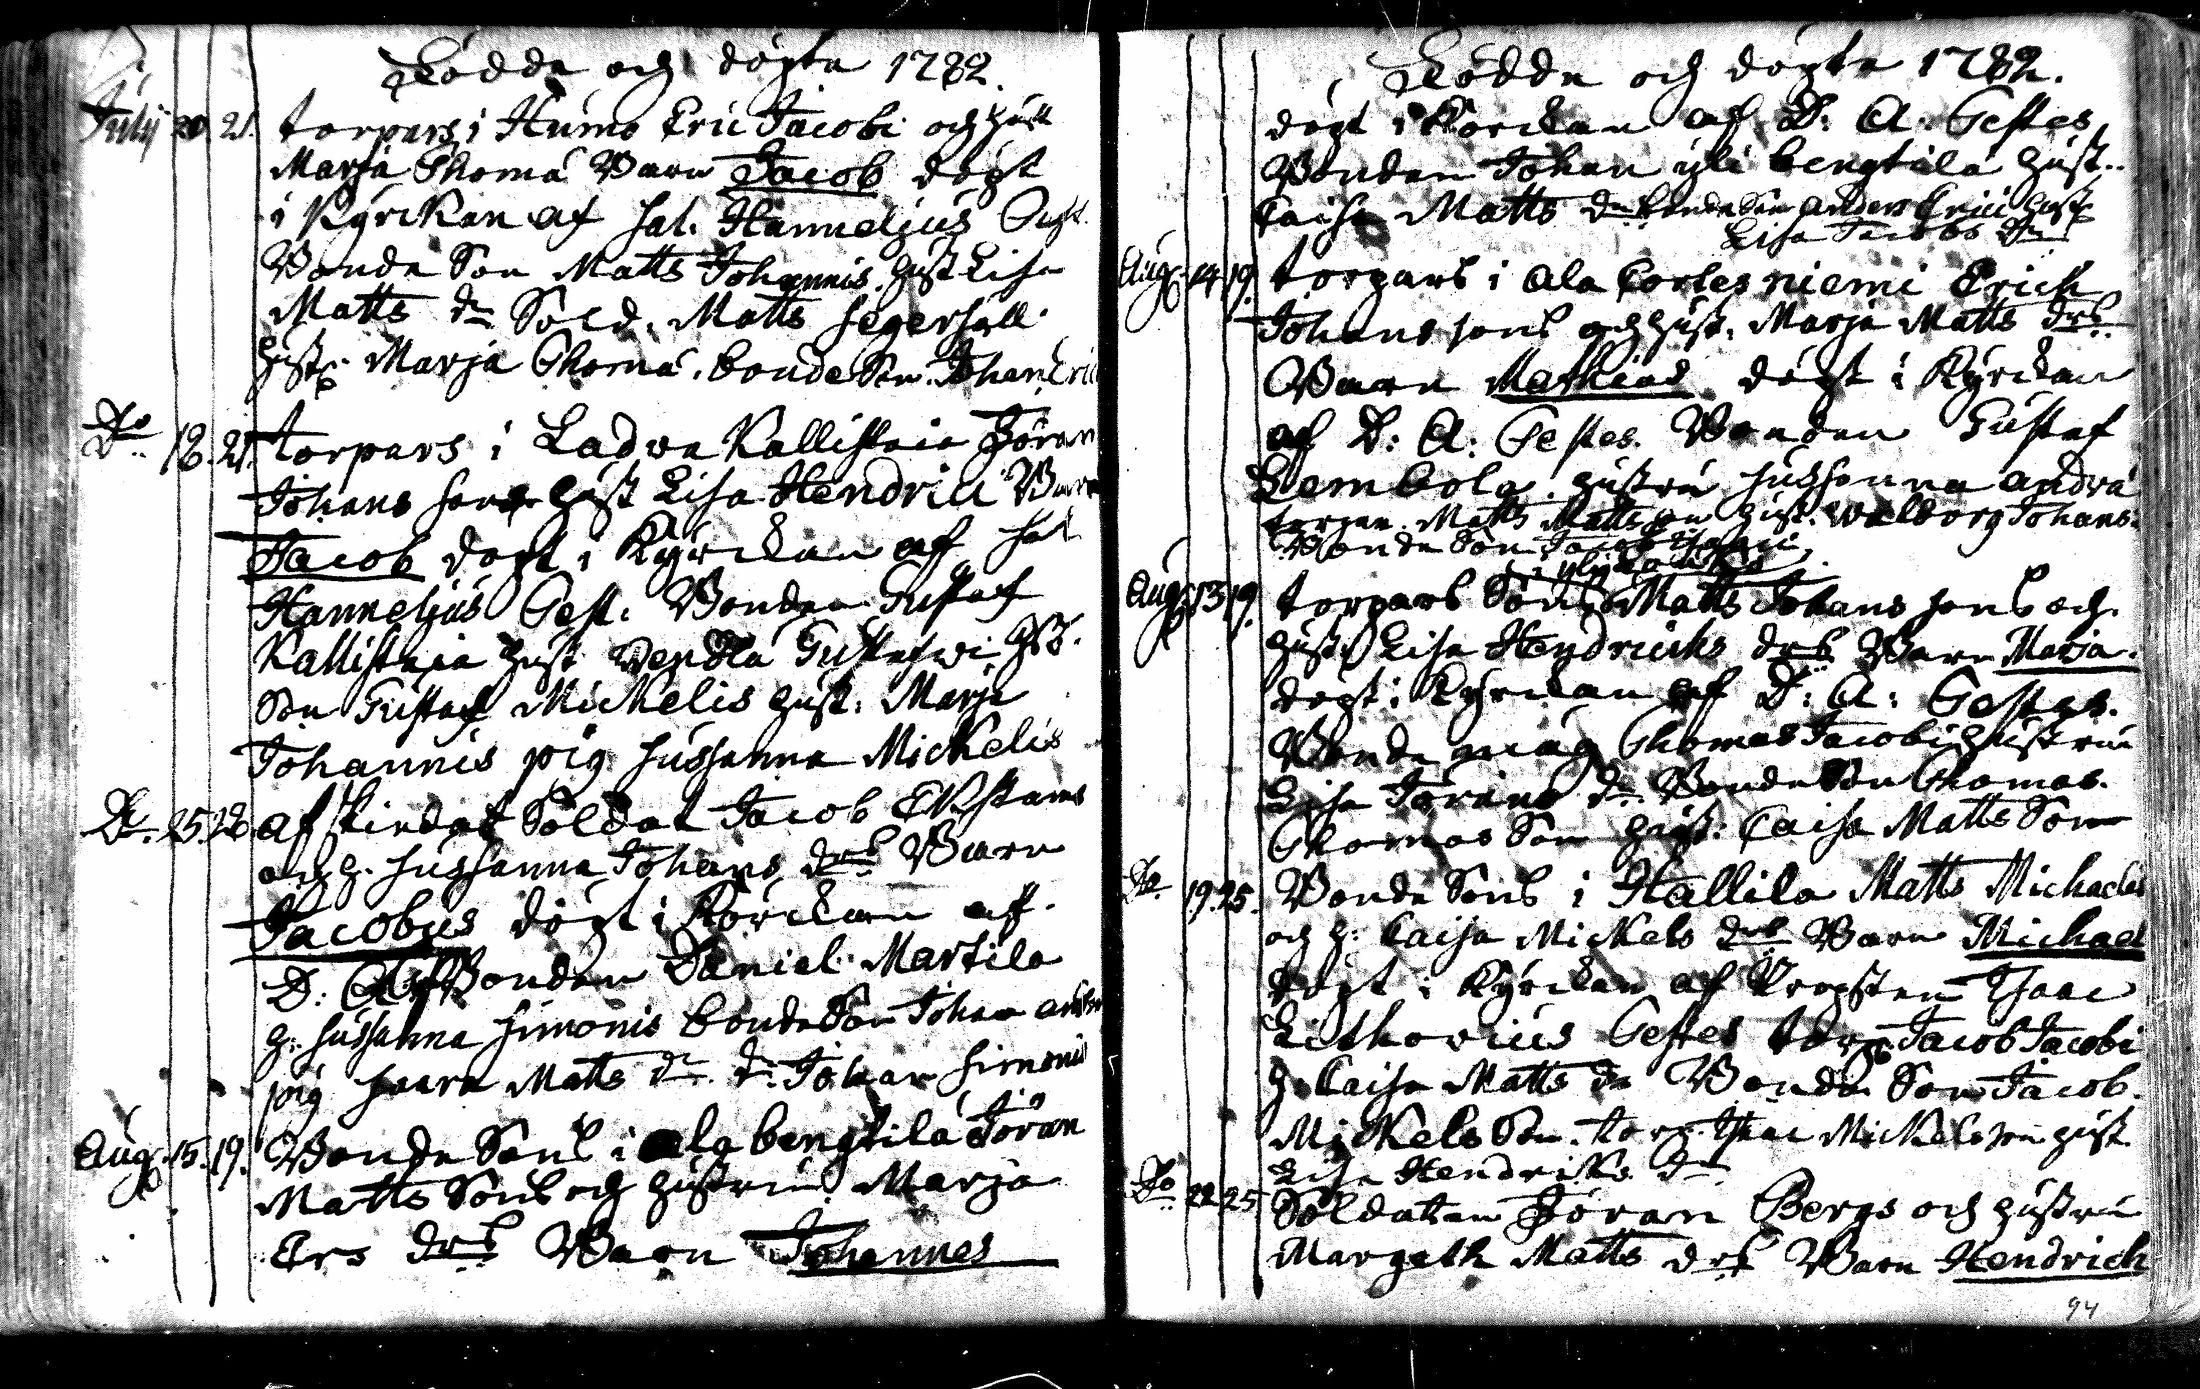 Födde och döpte 1782.
July 20 21. torpars i Humo Eric Jacobi och hust
Marja Thomä Barn Jacob döpt
i Kyrckan af sal. Hannelius Test.
Bonde Son Matts Johannis. hust Lisa
Matts dr Sold. Matts Segersäll
hust: Marja Thomä. bonde Son. Johan Erici
Do 18. 21. torpars i Ladwa Kallistaia Jöran
Johans sons hust Lisa Hendrici Barn
Jacob döpt i Kyrckan af sal
Hannelius Test. Bonden Gustaf
Kallistaia hust Wendla Gustafwi
Son Gustaf Mickelis hust: Marja
Johannis pig Sussanna Mickelis
Do. 25. 28. afskiedat Soldat Jacob Ekstams
och h. Sussanna Johans drs Barn
Jacobus döpt i Körckan af
D: A: Bonden Daniel Martila
h: Sussanna Simonis bonde Son Johan
pig Saara Matts dr. dr: Johan Simonis
Aug. 15. 19. Bonde Sons i ala bengtilä Jöran
Matts Sons och hustru. Marja
Ers drs Barn Johannes
Födde och döpte 1782.
döpt i Körckan af D: A: Testes
Bonden Johan yli bengtilä hust..
Caisa Matts dr bonde Son anders Erici hust
Lisa Jacobs dr
Aug. 14 19. torpars i ala Cortesniemi Erich
Johans sons och hust. Marja Matts drs
Barn Mathias döpt i Kyrckan
af D: A: Testes. Bonden Gustaf
Lembola. hustru Sussanna andrä
torpar. Matts Mattsson hust. Walborg Johans.
Bonde Son Jacob
Aug. 13 19. torpars Sons Matts Johans sons och
hust. Lisa Hendrichs drs Barn Marja.
döpt i Kyrckan af D: A: Testes.
Bonde måg Thomas Jacobi hustru
Lisa Jörans dr Bonde Son Thomas.
Thomas Son hust: Caisa Matts Son
Do 19. 25. Bonde Sons i Hallila Matts Michaelis
och h: Caisa Mickels drs Barn Michael
döpt i Kyrckan af Prosten Isaac
Lithovius Testes torp Jacob Jacobi
h: Caisa Matts dr Bonde Son Jacob.
Mickels Son. torp. Isaac Mickelsson hust.
Lisa Hendricks dr
Do 22 25 Soldaten Jöran Bergs och hustru
Margeth Matts drs Barn Hendrich
94